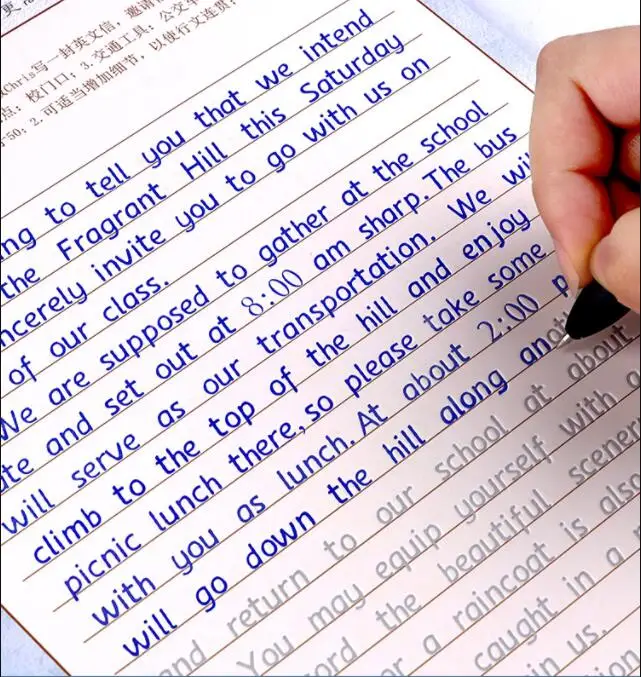 Chris写一封英文信，邀请
点：校门口；3.交通工具：公交车
50；2.可适当增加细节，以使行文连贯；
ng to tell you that we intend
the Fragrant Hill this Saturday
ncerely invite you to go with us on
of our class.
We are supposed to gather at the school
te and set out at 8:00 am sharp. The bus
will serve as our transportation. We wil
climb to the top of the hill and enjoy
picnic lunch there, so please take some
with you as lunch. At about 2:00 p
will go down the hill along anot
and return to our school at about
You may equip yourself with a
ord the beautiful scener
or a raincoat is also
caught in a
in us.
ion